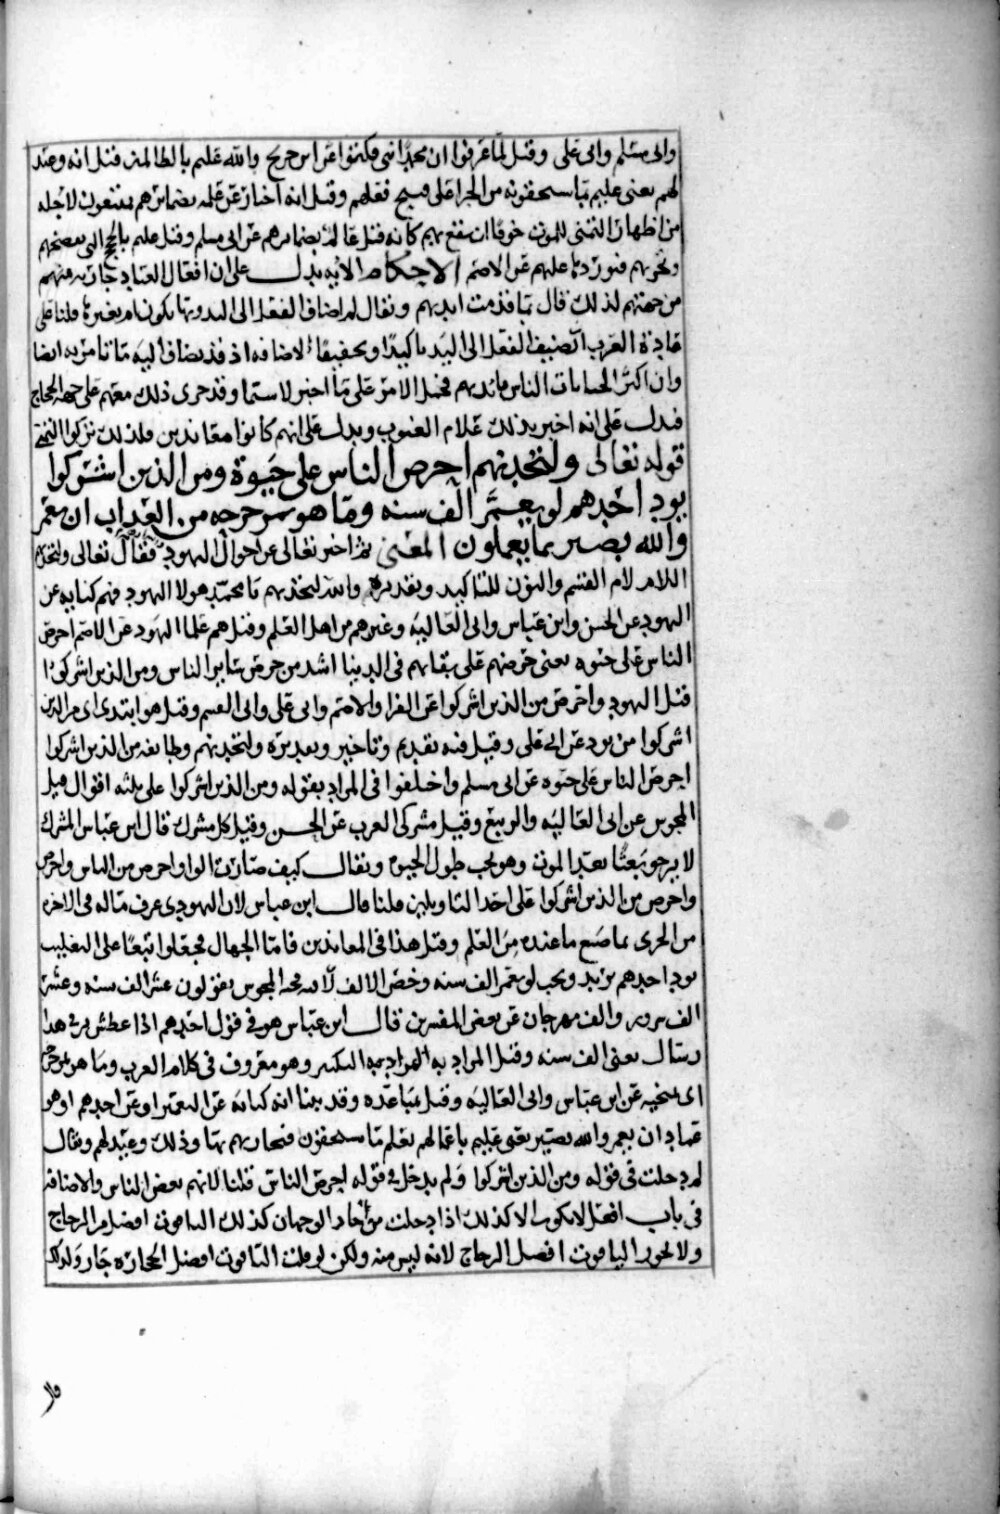 وابي مسلم وابي على وقيل لما عرفوا ان محمدا نبي فكتموا عن ابن جريج والله عليم بالظالمين قيل انه وعيد
لهم يعني عليم بما يستحقونه من الجزا على قبيح فعلهم وقيل انه اخبار عن علمه بضمايرهم ممتنعون لاجله
من اظهار التمني للموت خوفا ان يقع بهم كانه قيل عالم بضمايرهم عن ابي مسلم وقيل عليم بالحجج التي
عليهم عن الاصم الاحكام الآيه يدل على ان افعال العباد حادثه منهم
من جهتهم لذلك قال بما قدمت ايديهم ويقال لم اضاف الفعل الى اليد وربما يكون بغيرها قلنا على
عادة العرب تضيف الفعل الى اليد تاكيدا وتحقيقا للاضافه اذ قد يضاف اليه ما يامر به ايضا
وان اكثر الجنايات للناس بايديهم فحمل الامر على ما اخبر لاسيما وقد جرى ذلك معهم على جهة الحجاج
فدل على انه اخبر بذلك علام الغيوب ويدل على انهم كانوا معاندين ولذلك تركوا التمني
قوله تعالى ولتجدنهم احرص الناس على حيوة ومن الذين اشركوا
يود احدهم لو يعمر الف سنه وما هو بمزحزحه من العذاب ان يعمر
والله بصير بما يعملون المعنى ثم اخبر تعالى عن احوال اليهود فقال تعالى ولتجدنهم
اللام لام القسم والنون للتاكيد وتقديره والله لتجدنهم يا محمد هولا اليهود فهم كنايه عن
اليهود عن الحسن وابن عباس وابي العاليه وغيرهم من اهل العلم وقيل هم علما اليهود عن الاصم احرص
الناس على حيوه يعني حرصهم على بقايهم في الدنيا اشد من حرص ساير الناس ومن الذين اشركوا
قيل اليهود واحرص من الذين اشركوا عن الفرا والاصم وابي على وابي القسم وقيل هو ابتدى اي من الذين
اشركوا من يود عن ابي على وقيل فيه تقديم وتاخير وتقديره ولتجدنهم وطايفه من الذين اشركوا
احرص الناس على حيوه عن ابي مسلم واختلفوا في المراد بقوله ومن الذين اشركوا على ثلثه اقوال قيل
المجوس عن ابي العاليه والربيع وقيل مشركى العرب عن الحسن وقيل كل مشرك قال ابن عباس المشرك
لا يرجو بعثا بعد الموت وهو يحب طول الحيوه ويقال كيف صارت الواو احرص من الناس واحرص
واحرص من الذين اشركوا على احد التاويلين قلنا قال ابن عباس لان اليهودي عرف ماله في الاخره
من الخزى بما صنع ما عنده من العلم وقيل هذا في المعاندين فاما الجهال فجعلوا تبعا على التغليب
يود احدهم يريد ويحب لو يعمر الف سنه وخص الالف لانه تحيه المجوس يقولون عش الف سنه وعش
الف نيروز والف مهرجان عن بعض المفسرين قال ابن عباس هو في قول احدهم اذا عطش بزى هذا
رسال يعني الف سنه وقيل المراد به المراد به التكثير وهو معروف في كلام العرب وما هو بمزحزحه
اى بمنجيه عن ابن عباس وابي العاليه وقيل بمباعده وقد بينا انه كنايه عن التعمير او عن احدهم او هو
عماد ان يعمر والله بصير يعني عليم باعمالهم يعلم ما يستحقون فيجازيهم بها وذلك وعيد لهم ويقال
لم دخلت في قوله ومن الذين اشركوا ولم يدخل في قوله احرص الناس قلنا لانهم بعض الناس والاضافه
في باب افعل لا يكون الا كذلك اذا دخلت من جاز الوجهان كذلك الياقوت افضل من الزجاج
ولا يجوز الياقوت افضل الزجاج لانه ليس منه ولكن لو قلت الياقوت افضل الحجاره جاز ولذلك